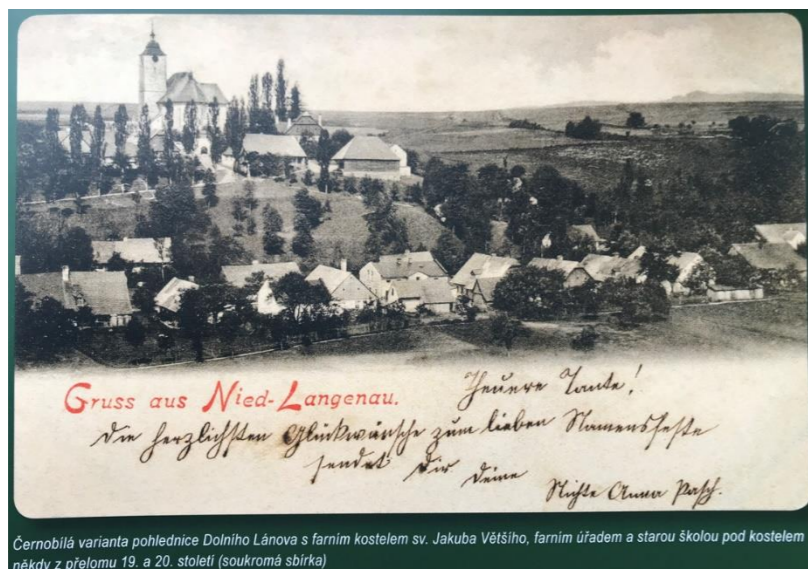 Gruss aus Nied-Langenau.
Theuere Tante!
Die herzlichsten Glückwünsche zum lieben Namensfeste
sendet Dir deine
Nichte Anna Pasch.
Černobílá varianta pohlednice Dolního Lánova s farním kostelem sv. Jakuba Většího, farním úřadem a starou školou pod kostelem
někdy z přelomu 19. a 20. století (soukromá sbírka)